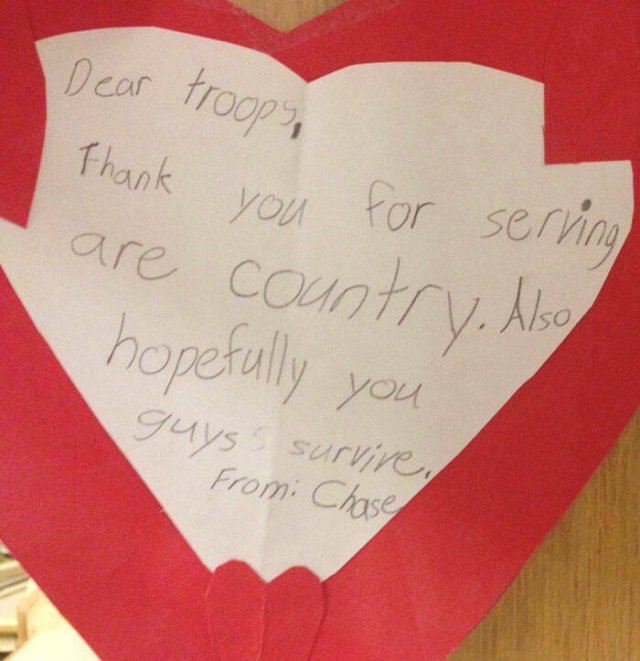 Dear troops,
Thank you for serving
are country. Also
hopefully you
guys survive.
From: Chase